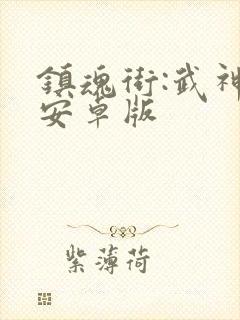 鎮魂街:武神
安卓版
紫薄荷